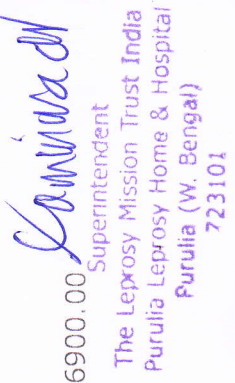 6900.00
Superintendent
The Leprosy Mission Trust India
Purulia Leprosy Home & Hospital
Purulia (W. Bengal)
723101